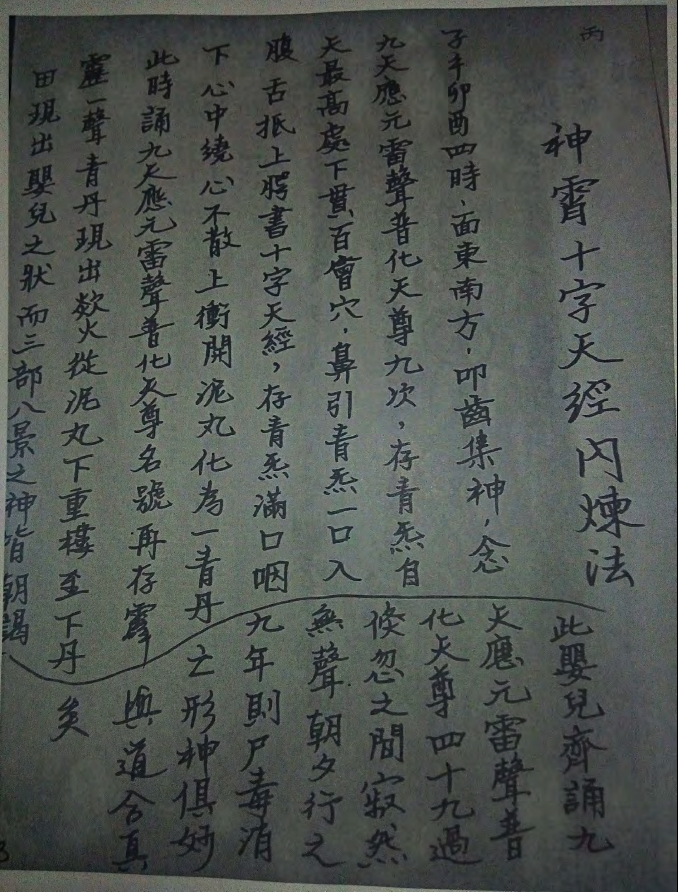 丙
神霄十字天經內煉法
子午卯酉四時,面東南方,叩齒集神,念
九天應元雷聲普化天尊九次,存青炁自
天最高處下貫百會穴,鼻引青炁一口入
腹舌抵上腭書十字天經,存青炁滿口咽
下心中繞心不散上衝開泥丸化為一青丹
此時誦九天應元雷聲普化天尊名號再存霹
靂一聲青丹現出燚火從泥丸下重樓至下丹
田現出嬰兒之狀而三部八景之神皆朝謁
此嬰兒齊誦九
天應元雷聲普
化天尊四十九過
倏忽之間寂然
無聲朝夕行之
九年則尸毒消
亡形神俱妙
與道合真
矣
3